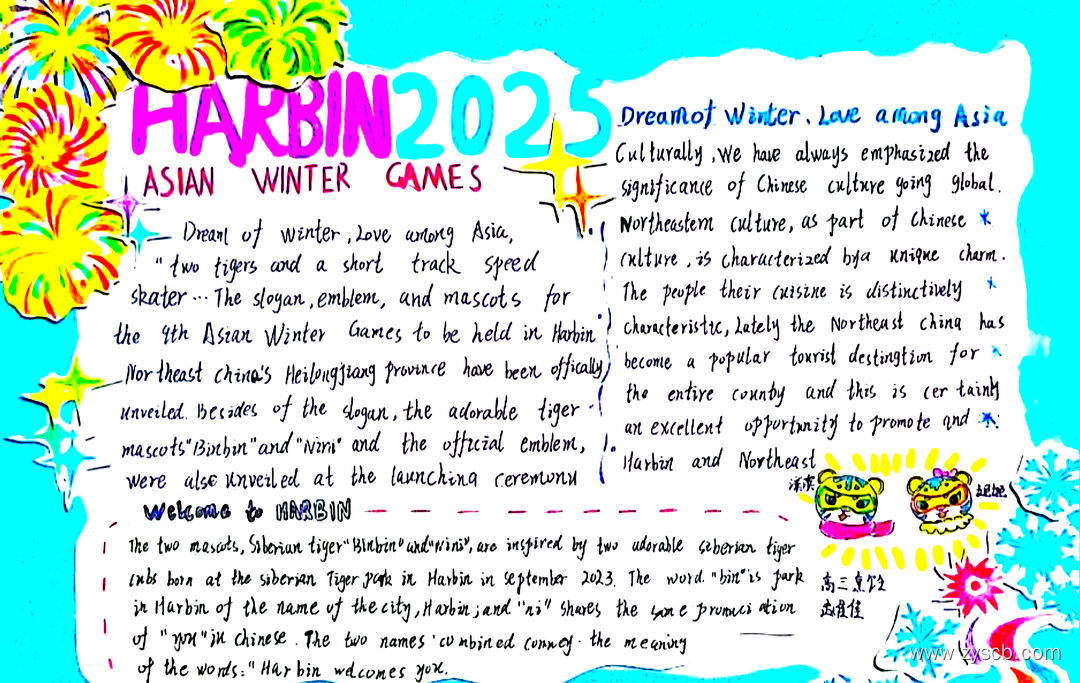 HARBIN 2025
ASIAN WINTER GAMES
Dream of winter, Love among Asia,
"two tigers and a short track speed
skater... The slogan, emblem, and mascots for
the 9th Asian Winter Games to be held in Harbin
Northeast china's Heilongjiang province have been offically
unveiled. Besides of the slogan, the adorable tiger
mascots "Binbin" and "Nini" and the official emblem,
were also unveiled at the launching ceremony
Dream of Winter, Love among Asia
Culturally, We have always emphasized the
significance of Chinese culture going global.
Northeastern culture, as part of chinese
culture, is characterized bya unique charm.
The people their cuisine is distinctively
characteristic, Lately the Northeast china has
become a popular tourist destingtion for
the entire county and this is cer tainly
an excellent opportunity to promote and
Harbin and Northeast
滨滨
妮妮
Welcome to HARBIN
The two mascots, Siberian tiger "Binbin" and "Nini", are inspired by two adorable siberian tiger
cubs born at the siberian Tiger park in Harbin in september 2023. The word "bin" is park
in Harbin of the name of the city, Harbin; and "ni" shares the same pronuci ation
of "you" in chinese. The two names combined convey the meaning
of the words: "Harbin welcomes you.
高三
www.zyscb.com